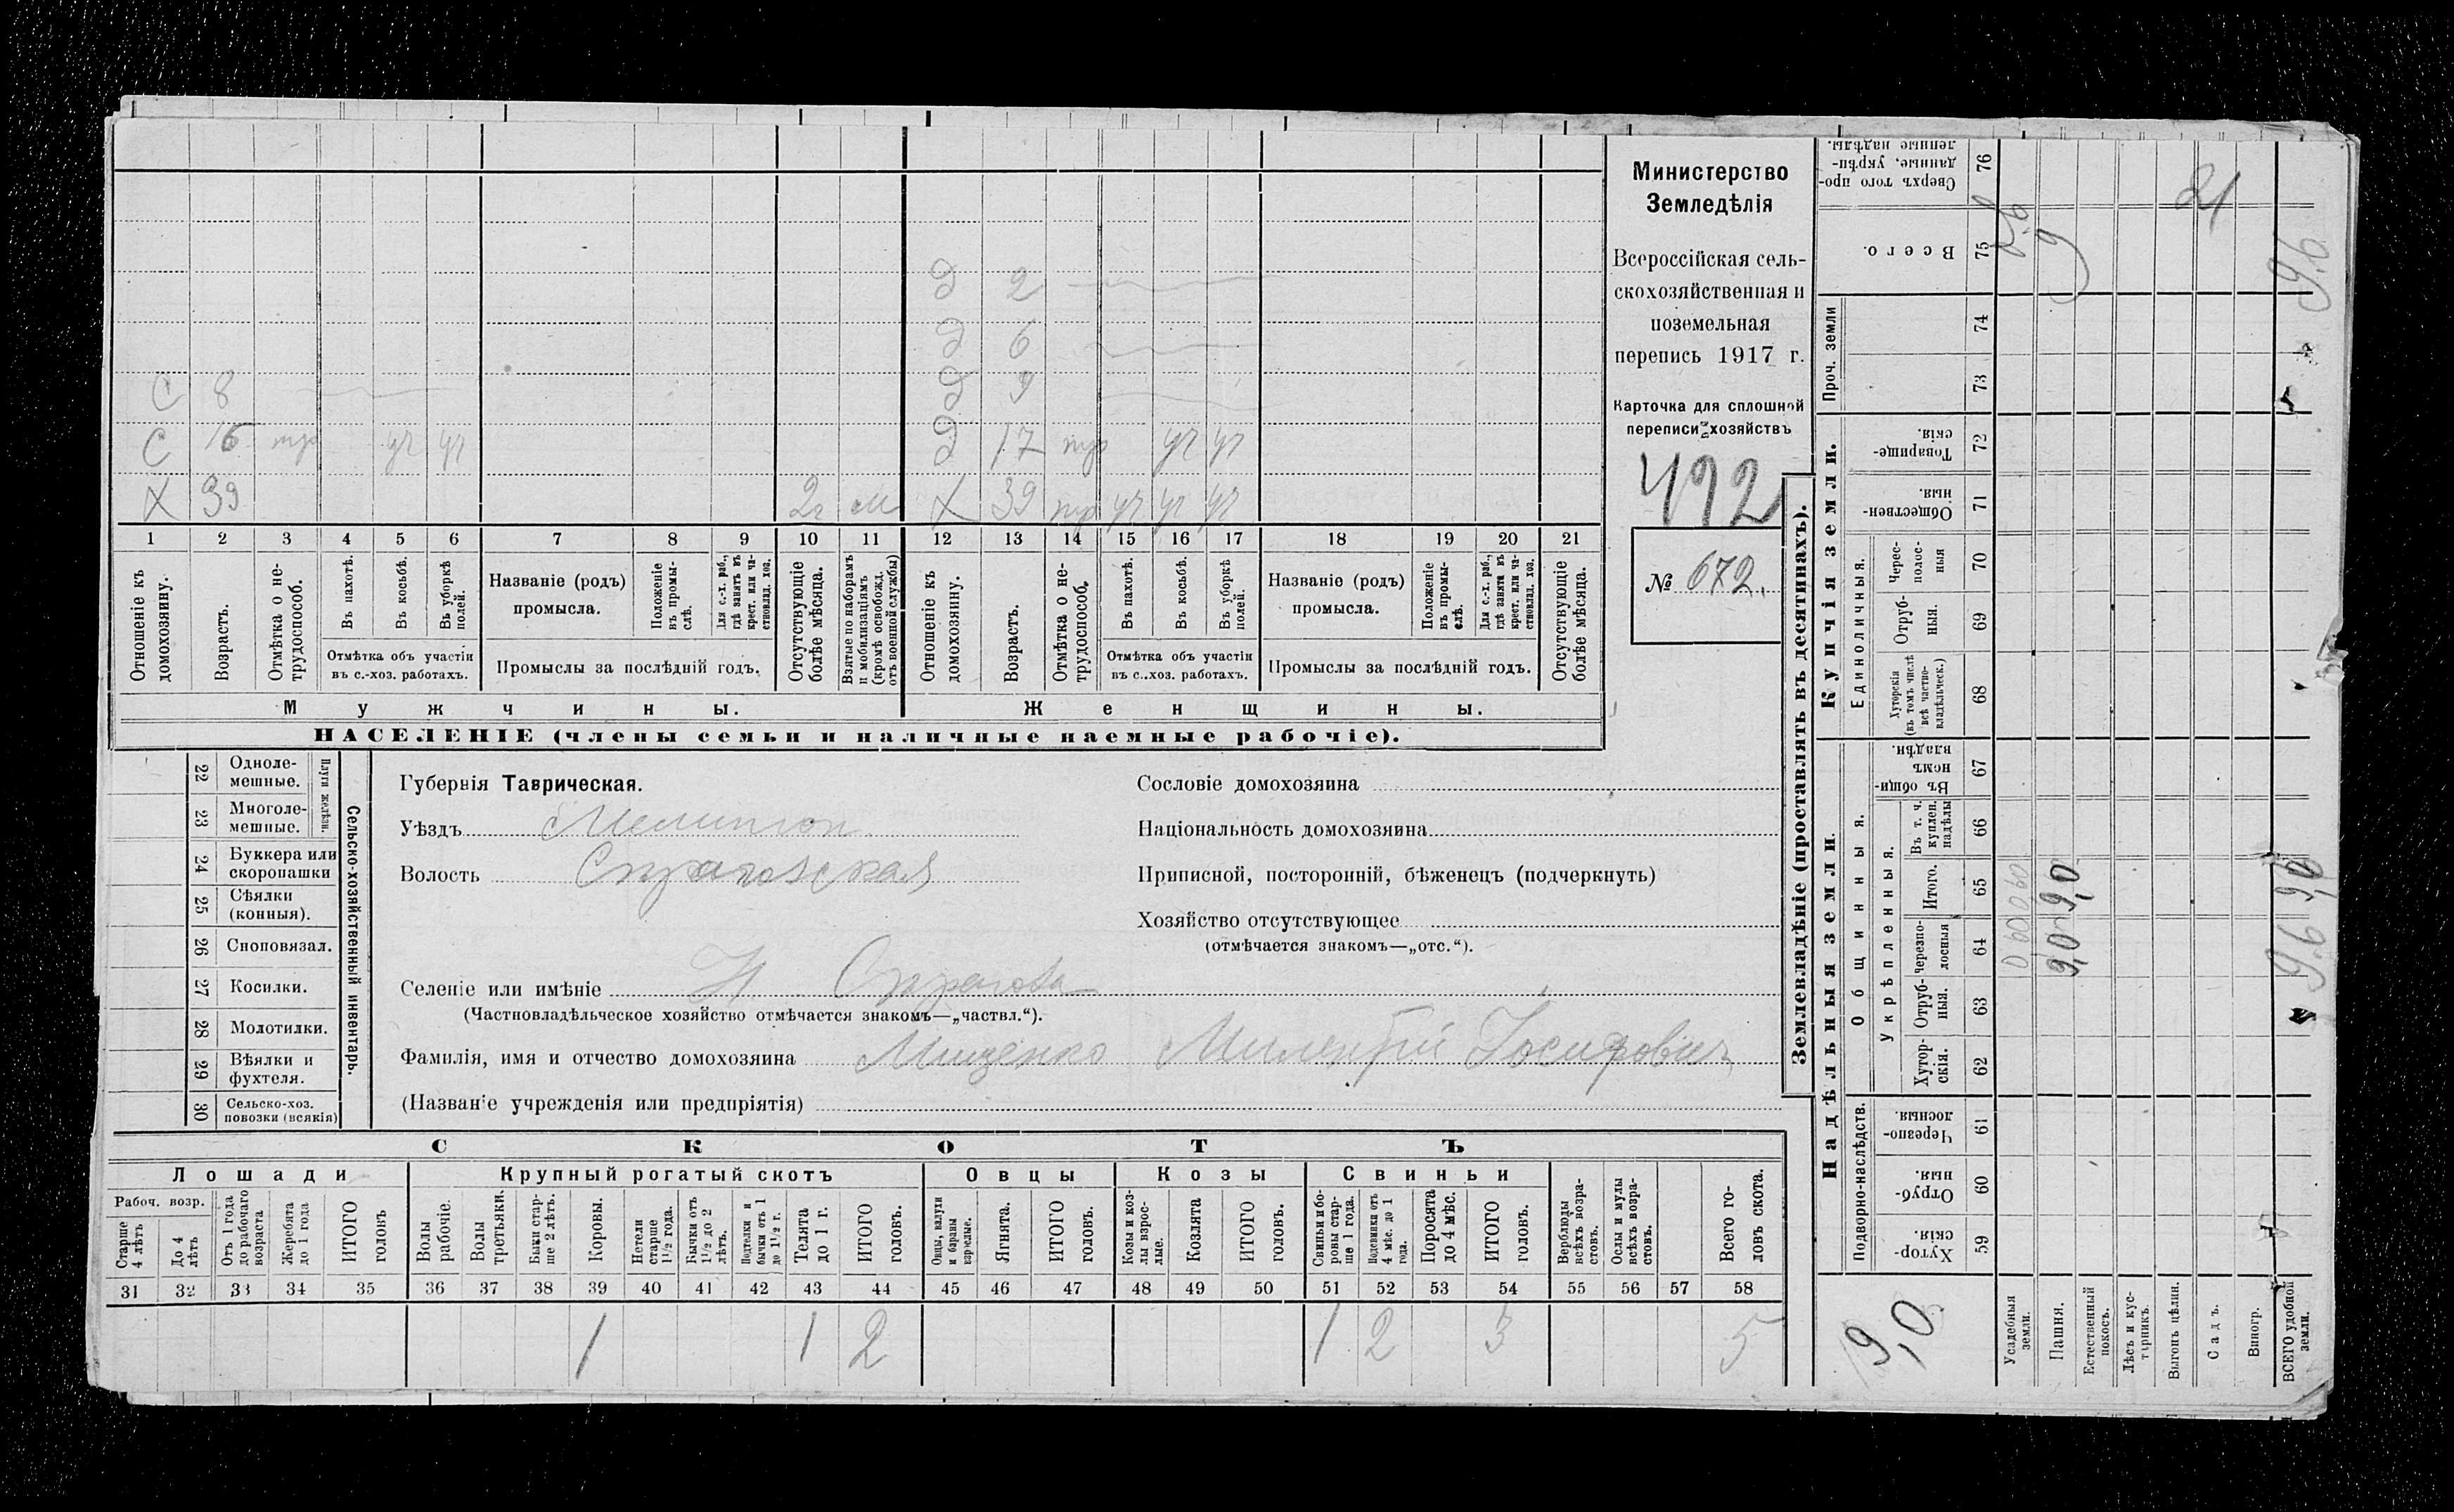 Министерство
Земледѣлія
Всероссійская сель-
скохозяйственная и
поземельная
перепись 1917 г.
Карточка для сплошной
переписи хозяйствъ
492
№ 672.
Д 2
Д 6
С 8 Д 9
С 16 тр уч уч Д 17 тр уч уч
Х 39 2г м Х 39 тр уч уч уч
1 2 3 4 5 6 7 8 9 10 11 12 13 14 15 16 17 18 19 20 21
Отношеніе къ домохозяину.
Возрастъ.
Отмѣтка о не-трудоспособ.
Въ пахотѣ.
Въ косьбѣ.
Въ уборкѣ полей.
Отмѣтка объ участіи
въ с.-хоз. работахъ.
Названіе (родъ)
промысла.
Положеніе въ промы-слѣ.
Для с.-х. раб., гдѣ занятъ въ крест. или ча-стновлад. хоз.
Промыслы за послѣдній годъ.
Отсутствующіе болѣе мѣсяца.
Взятые по наборамъ и мобилизаціямъ (кромѣ освобожд. отъ военной службы)
Отношеніе къ домохозяину.
Возрастъ.
Отмѣтка о не-трудоспособ.
Въ пахотѣ.
Въ косьбѣ.
Въ уборкѣ полей.
Отмѣтка объ участіи
въ с..хоз. работахъ.
Названіе (родъ)
промысла.
Положеніе въ промы-слѣ.
Для с.-х. раб., гдѣ занята въ крест. или ча-стновлад. хоз.
Промыслы за послѣдній годъ.
Отсутствующіе болѣе мѣсяца.
Мужчины. Женщины.
НАСЕЛЕНІЕ (члены семьи и наличные наемные рабочіе).
22 Одноле-мешные.
23 Многоле-мешные.
Плуги желѣзн.
24 Буккера или скоропашки
25 Сѣялки (конныя).
26 Сноповязал.
27 Косилки.
28 Молотилки.
29 Вѣялки и фухтеля.
30 Сельско-хоз. повозки (всякія)
Сельско-хозяйственный инвентарь.
Губернія Таврическая.
Уѣздъ Мелитоп
Волость
Селеніе или имѣніе Н.
(Частновладѣльческое хозяйство отмѣчается знакомъ—„частвл.“).
Фамилія, имя и отчество домохозяина Мищенко Іосифович
(Названіе учрежденія или предпріятія)
Сословіе домохозяина
Національность домохозяина
Приписной, посторонній, бѣженецъ (подчеркнуть)
Хозяйство отсутствующее
(отмѣчается знакомъ—„отс.“).
СКОТЪ
Лошади Крупный рогатый скотъ Овцы Козы Свиньи
Рабоч. возр.
Старше 4 лѣтъ
До 4 лѣтъ
Отъ 1 года до рабочаго возраста
Жеребята до 1 года
ИТОГО головъ
Волы рабочіе.
Волы третьяки.
Быки стар-ше 2 лѣтъ.
Коровы.
Нетели старше 1½ года.
Бычки отъ 1½ до 2 лѣтъ.
Подтелки и бычки отъ 1 до 1½ г.
Телята до 1 г.
ИТОГО головъ.
Овцы, валухи и бараны взрослые.
Ягнята.
ИТОГО головъ.
Козы и коз-лы взрос-лые.
Козлята
ИТОГО головъ.
Свиньи и бо-ровы стар-ше 1 года.
Подсвинки отъ 4 мѣс. до 1 года.
Поросята до 4 мѣс.
ИТОГО головъ.
Верблюды всѣхъ возра-стовъ.
Ослы и мулы всѣхъ возра-стовъ.
Всего го-ловъ скота.
31 32 33 34 35 36 37 38 39 40 41 42 43 44 45 46 47 48 49 50 51 52 53 54 55 56 57 58
1 1 2 1 2 3 5
Землевладѣніе (проставлять въ десятинахъ).
Купчія земли.
Надѣльныя земли
Сверхъ того про-данные, укрѣп-ленные надѣлы. 76
Всего. 75
Проч. земли 74 73
Товарище-скія. 72
Обществен-ныя. 71
Единоличныя.
Черес-полос-ныя 70
Отруб-ныя. 69
Хуторскія (въ томъ числѣ всѣ частно-владѣльческ.) 68
Въ общин-номъ владѣн. 67
Общинныя.
Укрѣпленныя.
Въ т. ч. куплен. надѣлы 66
Итого. 65
Черезпо-лосныя 64
Отруб-ныя. 63
Хутор-скія. 62
Подворно-наслѣдств.
Черезпо-лосныя. 61
Отруб-ныя. 60
Хутор-скія. 59
Усадебныя земли.
Пашня. 9,0 9,0 9
Естественный покосъ.
Лѣсъ и кус-тарникъ.
Выгонъ цѣлин.
Садъ.
Виногр.
ВСЕГО удобной земли. 9.6 9.6
9,0
21